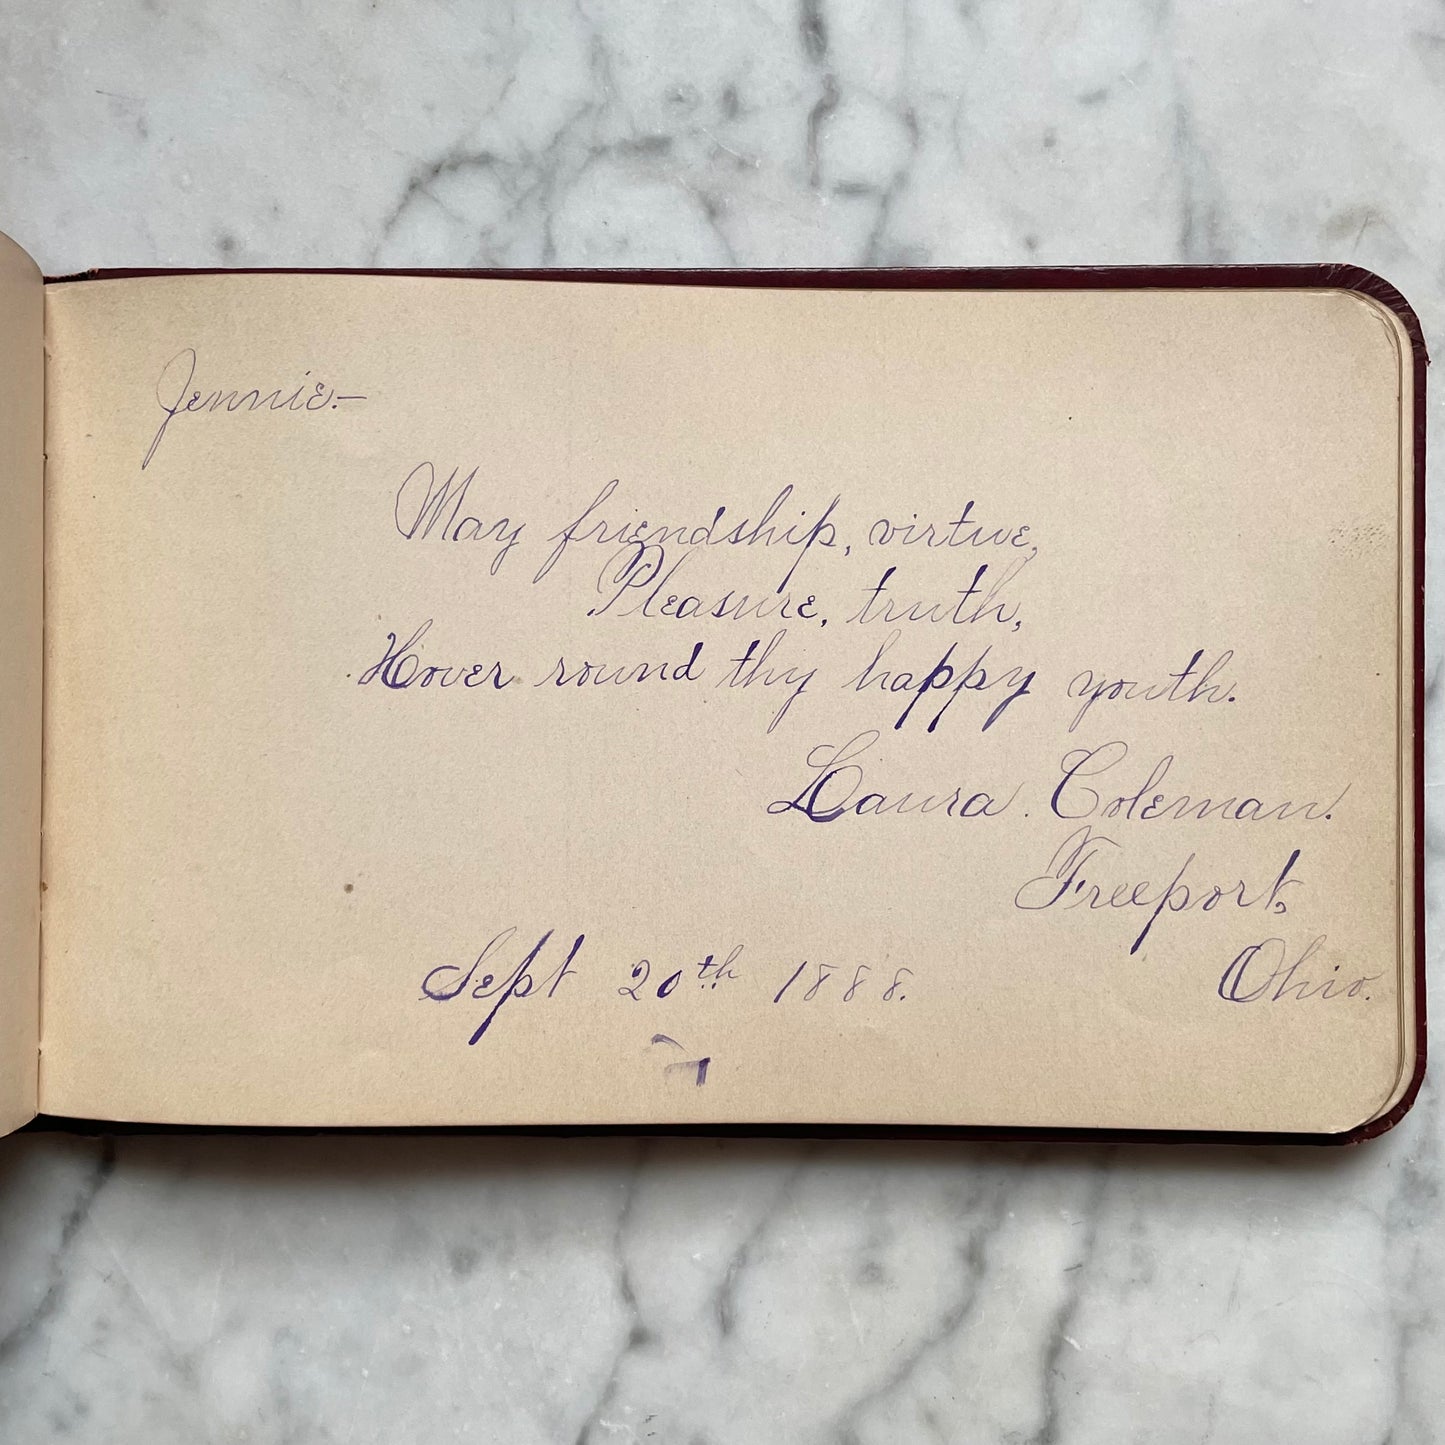 Jennie.—
May friendship, virtue,
Pleasure, truth,
Hover round thy happy youth.
Laura. Coleman.
Freeport,
Sept 20th 1888. Ohio.